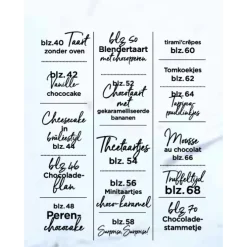 blz.40 Taart
zonder oven
blz.42
Vanille-
chococake
Cheesecake
in
brûléestijl
blz.44
blz.46
Chocolade-
flan
blz.48
Peren/
chocoake
blz 50
Blengertaart
met chocoperen
blz.52
Chocotaart
met
gekaramelliseerde
bananen
Theetaartjes
blz. 54
blz.56
Minitaartjes
choco-karamel
blz.58
Surprise Surprise!
tirami²crêpes
blz.62
Tomkoekjes
blz.62
blz.64
Topping-
puddinkjes
Mousse
au chocolat
blz.66
Truffeltijd
blz.68
blz 70
Chocolade-
stammetje